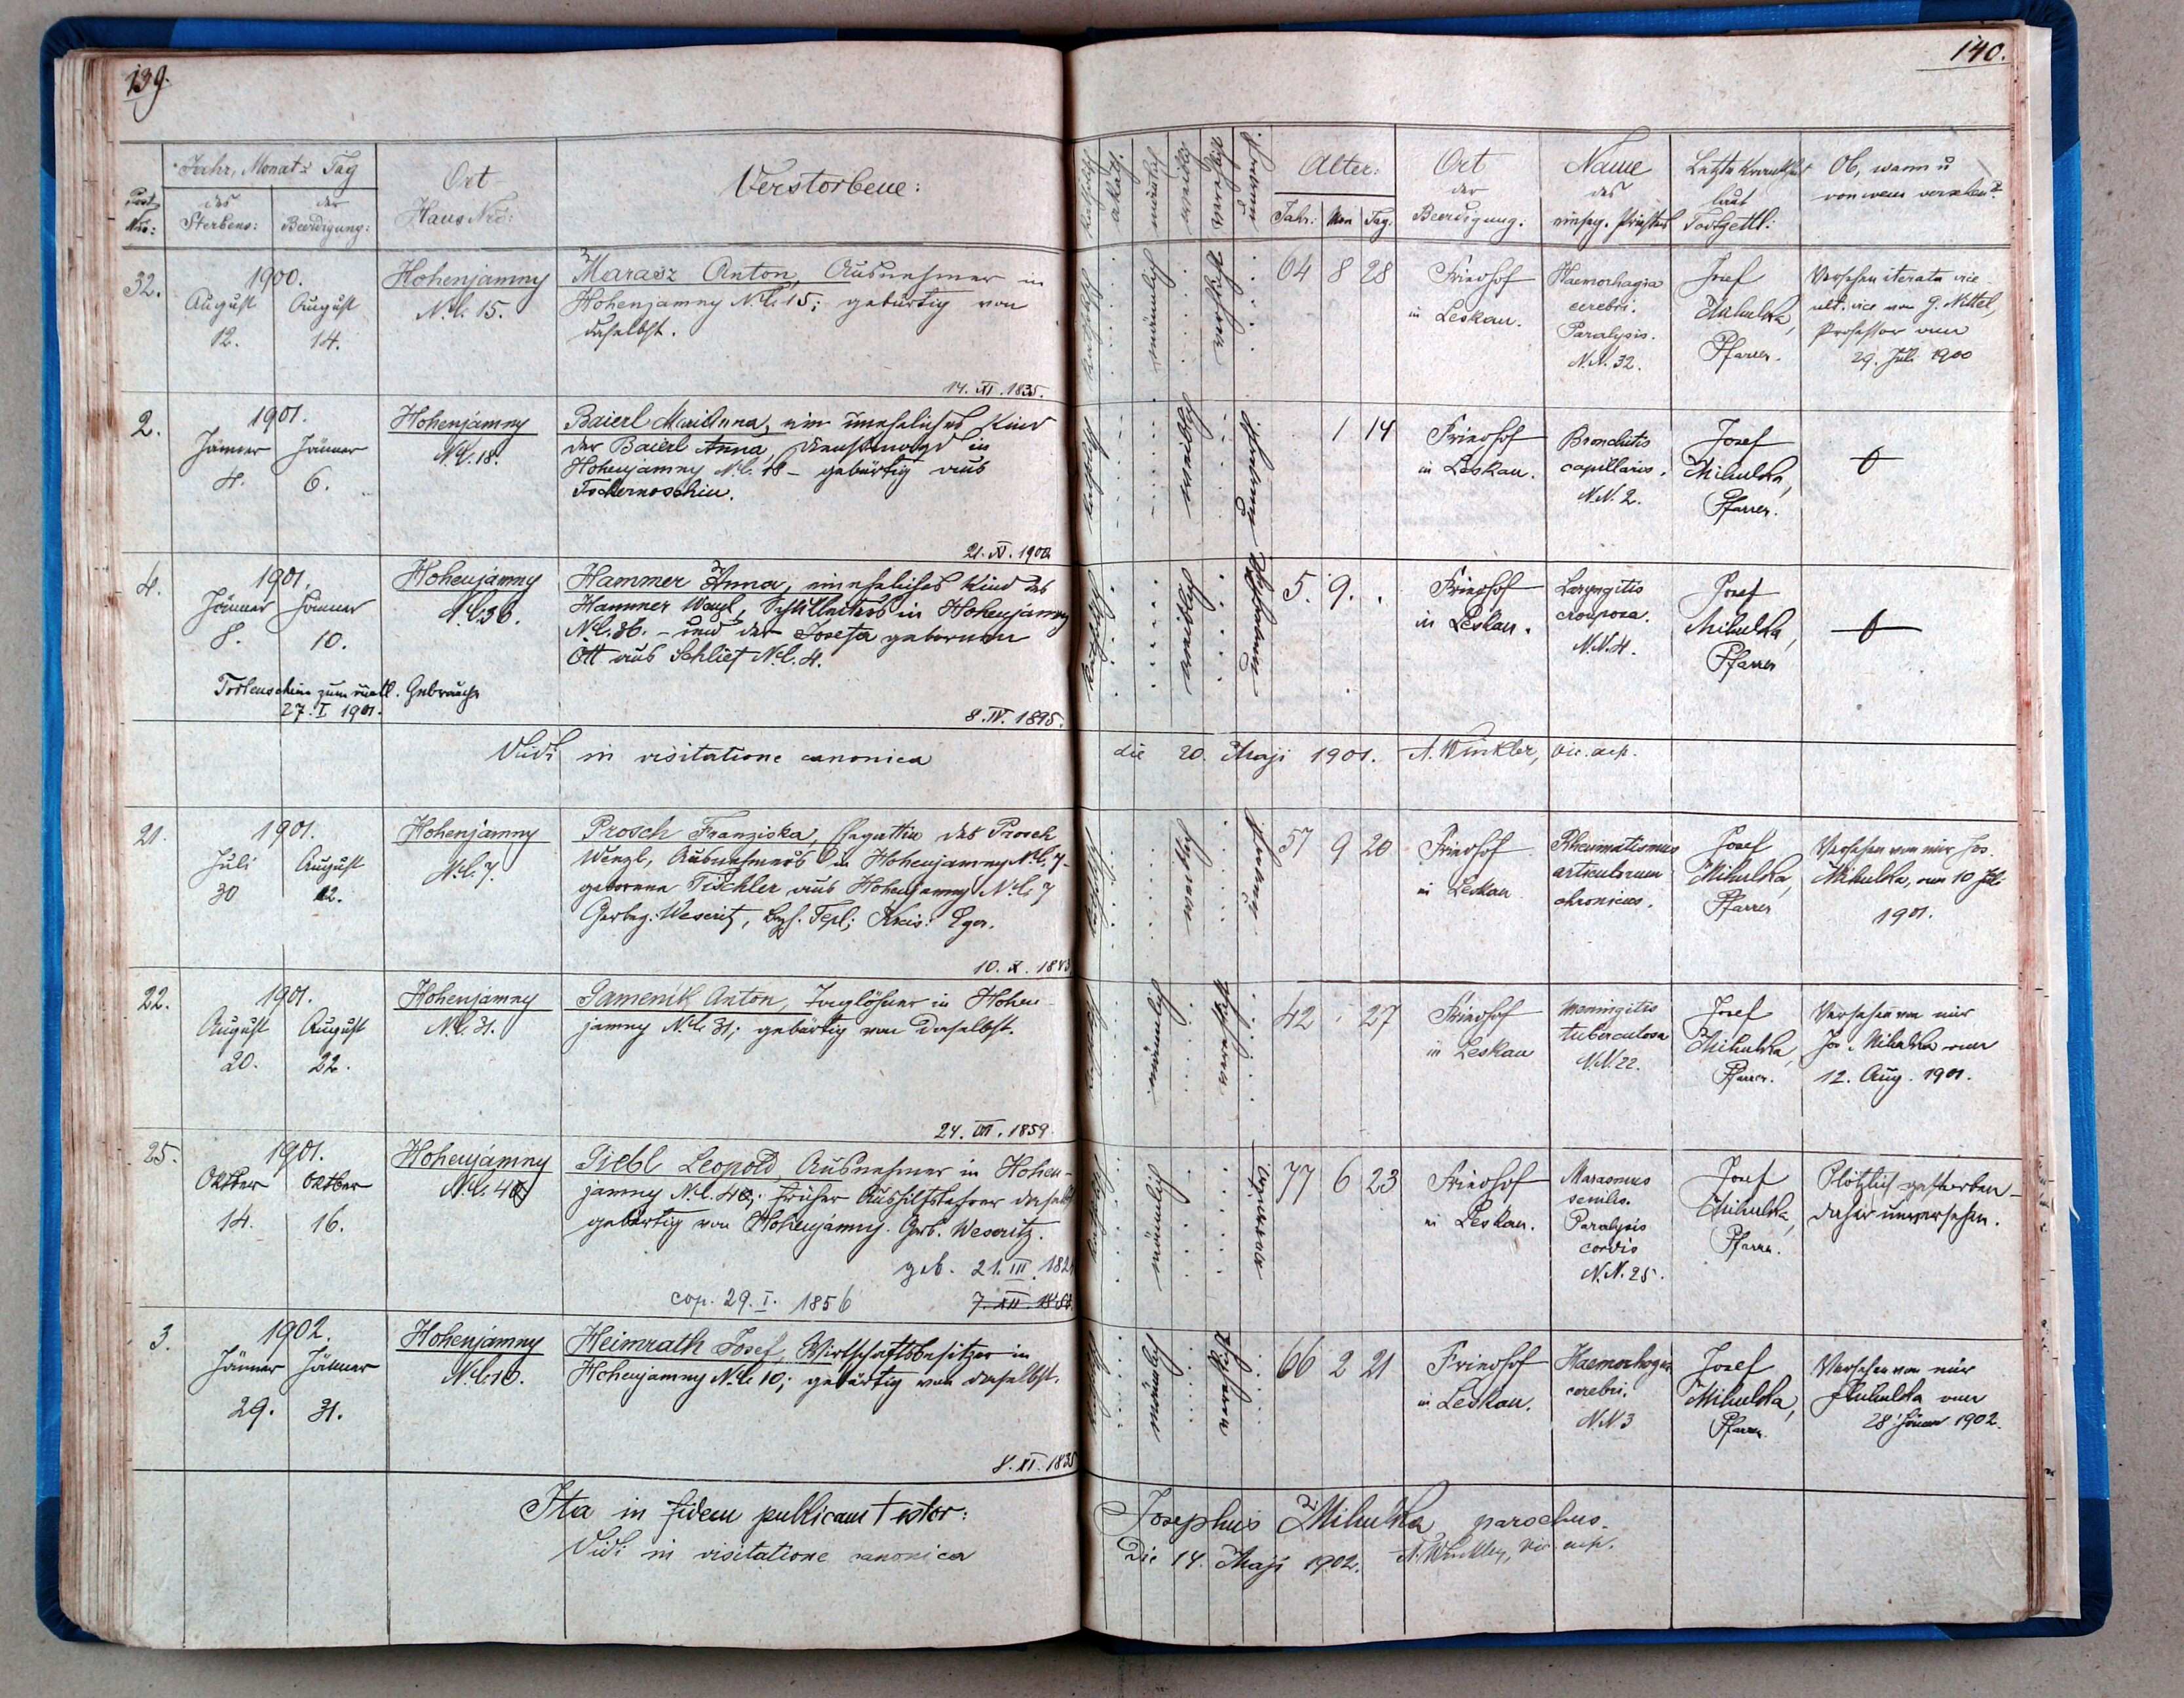 139.
140.
Jahr, Monat u Tag
Post
Nro:
des
Sterbens:
der
Beerdigung:
Ort
Haus Nro:
Verstorbene:
katholisch
akath.
männlich
weiblich
verehlicht
Alter:
Jahr:
Mon
Tag.
Ort
der
Beerdigung:
Name
des
einseg. Priesters
Letzte Krankheit
laut
Todtzettl:
Ob, wann u
von wem versehen?
32.
1900.
August August
12. 14.
Hohenjamny
N.C. 15.
Marasz Anton, Ausnehmer in
Hohenjamny N.C. 15; gebürtig von
daselbst.
14. XI. 1835.
männlich
verehlicht
64 8 28
Friedhof
in Leskau.
Haemorhagia
cerebri.
Paralysis.
N.N. 32.
Josef
Mikulka,
Pfarrer.
Versehen iterata vice
ult. vice von G. Nittel,
Professor am
29. Juli 1900
2.
1901.
Jänner Jänner
4. 6.
Hohenjamny
N.C. 18.
Baierl Maria Anna, ein uneheliches Kind
der Baierl Anna, Dienstmagd in
Hohenjamny N.C. 18 – gebürtig aus
Tschernoschin.
21. XI. 1900
weiblich
1 14
Friedhof
in Leskau.
Bronchitis
capillaris.
N.N. 2.
Josef
Mikulka,
Pfarrer.
4.
1901.
Jänner Jänner
8. 10.
Hohenjamny
N.C. 36.
Hammer Anna, eineheliches Kind des
Hammer Wenzl, in Hohenjamny
N.C. 36. – und der Josefa gebornen
Ott aus Schlief N.C. 4.
Todtenschein zum amtl. Gebrauche
27. I. 1901.
8. IV. 1895.
weiblich
5. 9. .
Friedhof
in Leskau.
Laryngitis
crouposa.
N.N. 4.
Josef
Mikulka,
Pfarrer
Vidi in visitatione canonica die 20. Maji 1901. A. Winkler, vic. aep.
21.
1901.
Juli August
30
Hohenjamny
N.C. 7.
Prosch Franziska, Ehegattin des Prosch
Wenzl, Ausnehmers in Hohenjamny N.C. 7 –
geborene Tischler aus Hohenjamny N.C. 7
Gerbez. Weseritz, Bzh. Tepl; Kreis: Eger.
10. X. 1843
weiblich
57 9 20
Friedhof
in Leskau
Rheumatismus
articulorum
chronicus.
Josef
Mikulka,
Pfarrer
Versehen von mir Jos.
Mikulka, am 10 Juli
1901.
22.
1901.
August August
20. 22.
Hohenjamny
N.C. 31.
Sameník Anton, Taglöhner in Hohen-
jamny N.C. 31; gebürtig von daselbst.
24. VII. 1859.
männlich
verehlicht
42 . 27
Friedhof
in Leskau
Meningitis
tuberculosa
N.N. 22.
Josef
Mikulka,
Pfarrer.
Versehen von mir
Jos. Mikulka am
12. Aug. 1901.
25.
1901.
Oktber Oktber
14. 16.
Hohenjamny
Siebl Leopold, Ausnehmer in Hohen-
jamny N.C. 40; früher Aushilfslehrer daselbst
gebürtig von Hohenjamny. Gerb. Weseritz.
geb. 21. III. 1824
cop. 29. I. 1856
männlich
verwitwet
77 6 23
Friedhof
in Leskau.
Marasmus
senilis.
Paralysis
cordis
N.N. 25.
Josef
Mikulka,
Pfarrer.
Plötzlich gestorben –
daher unversehen.
3.
1902.
Jänner Jänner
29. 31.
Hohenjamny
N.C. 10.
Heimrath Josef, Wirtschaftsbesitzer in
Hohenjamny N.C. 10; gebürtig von daselbst.
8. XI. 1835
männlich
verehlicht
66 2 21
Friedhof
in Leskau.
Haemorhagia
cerebri.
N.N. 3
Josef
Mikulka,
Pfarrer.
Versehen von mir
Mikulka am
28. Jänner 1902.
Ita in fidem publicam testor: Josephus Mikulka, parochus.
Vidi in visitatione canonica Die 14. Maji 1902. A. Winkler, vic. aep.